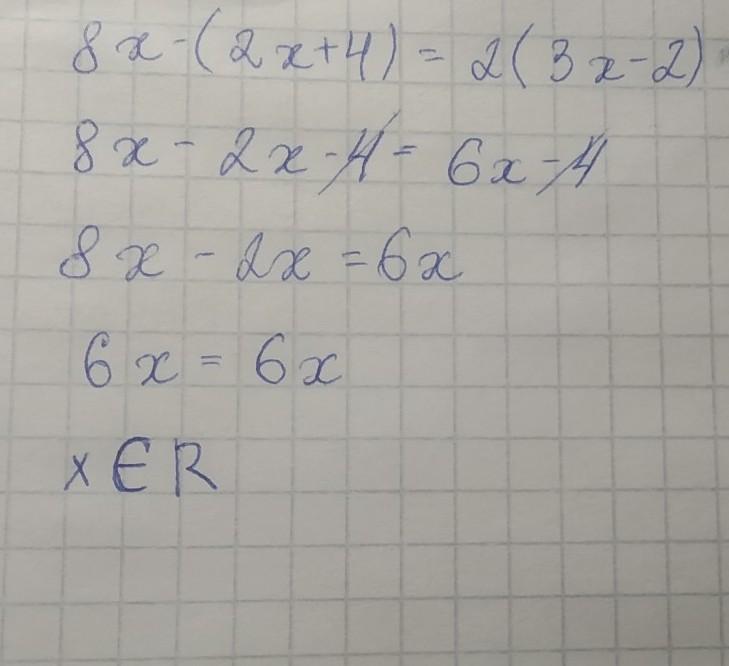 8x-(2x+4) = 2(3x-2)
8x - 2x - 4 = 6x - 4
8x - 2x = 6x
6x = 6x
x ∈ R